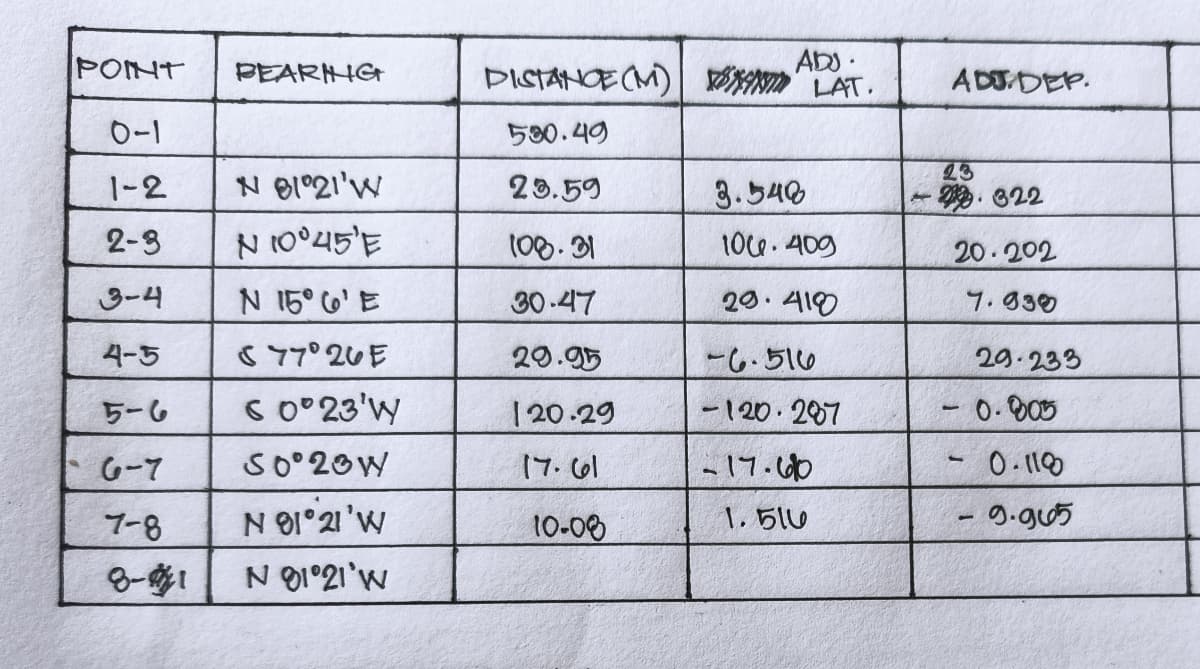 POINT BEARING DISTANCE (M) ADJ. LAT. ADJ. DEP.
0-1 530.49
1-2 N 81°21'W 23.59 3.548 -23.322
2-3 N 10°45'E 108.31 106.409 20.202
3-4 N 15°6'E 30.47 29.418 7.938
4-5 S 77°26 E 29.95 -6.516 29.233
5-6 S 0°23'W 120.29 -120.287 - 0.805
6-7 S 0°23 W 17.61 -17.610 - 0.118
7-8 N 81°21'W 10.08 1.516 - 9.965
8-1 N 81°21'W